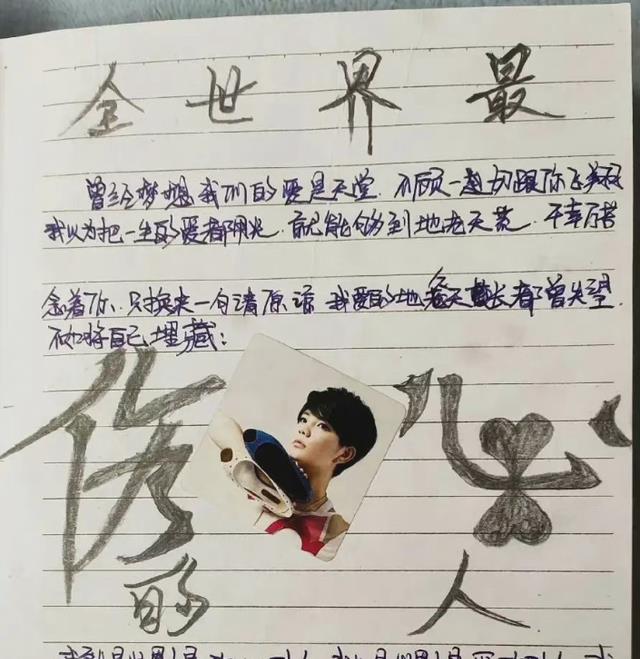 全世界最
曾经梦想我们的爱是天堂.不顾一切跟你飞翔
我以为把一生的爱都用光.就能够到地老天荒.千辛万苦
念着你.只换来一句请原谅.我爱的地老天长都曾失望
不如将自己埋藏:
伤心
的人